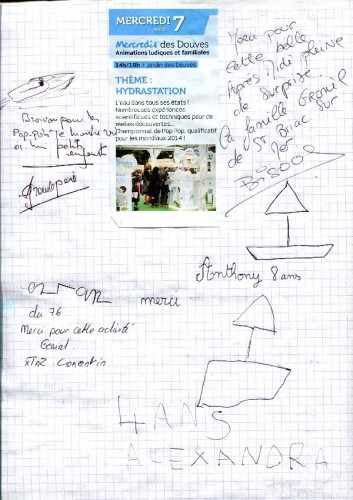 MERCREDI 7
Mercredis des Douves
Animations ludiques et familiales
14h/18h > Jardin des Douves
THÈME :
HYDRASTATION
L'eau dans tous ses états !
Nombreuses expériences
scientifiques et techniques pour de
réelles découvertes...
Championnat de Pop Pop, qualificatif
pour les mondiaux 2014 !
pour
cette belle
Après midi pleine
de surprise.
La famille
de St Briac sur
Bisooo
Bravo pour les
Pop-Pop je
et mes petits
enfants
Anthony 8 ans
du 76
merci
Merci pour cette activité
Génial.
Corentin
4 ANS
ALEXANDRA